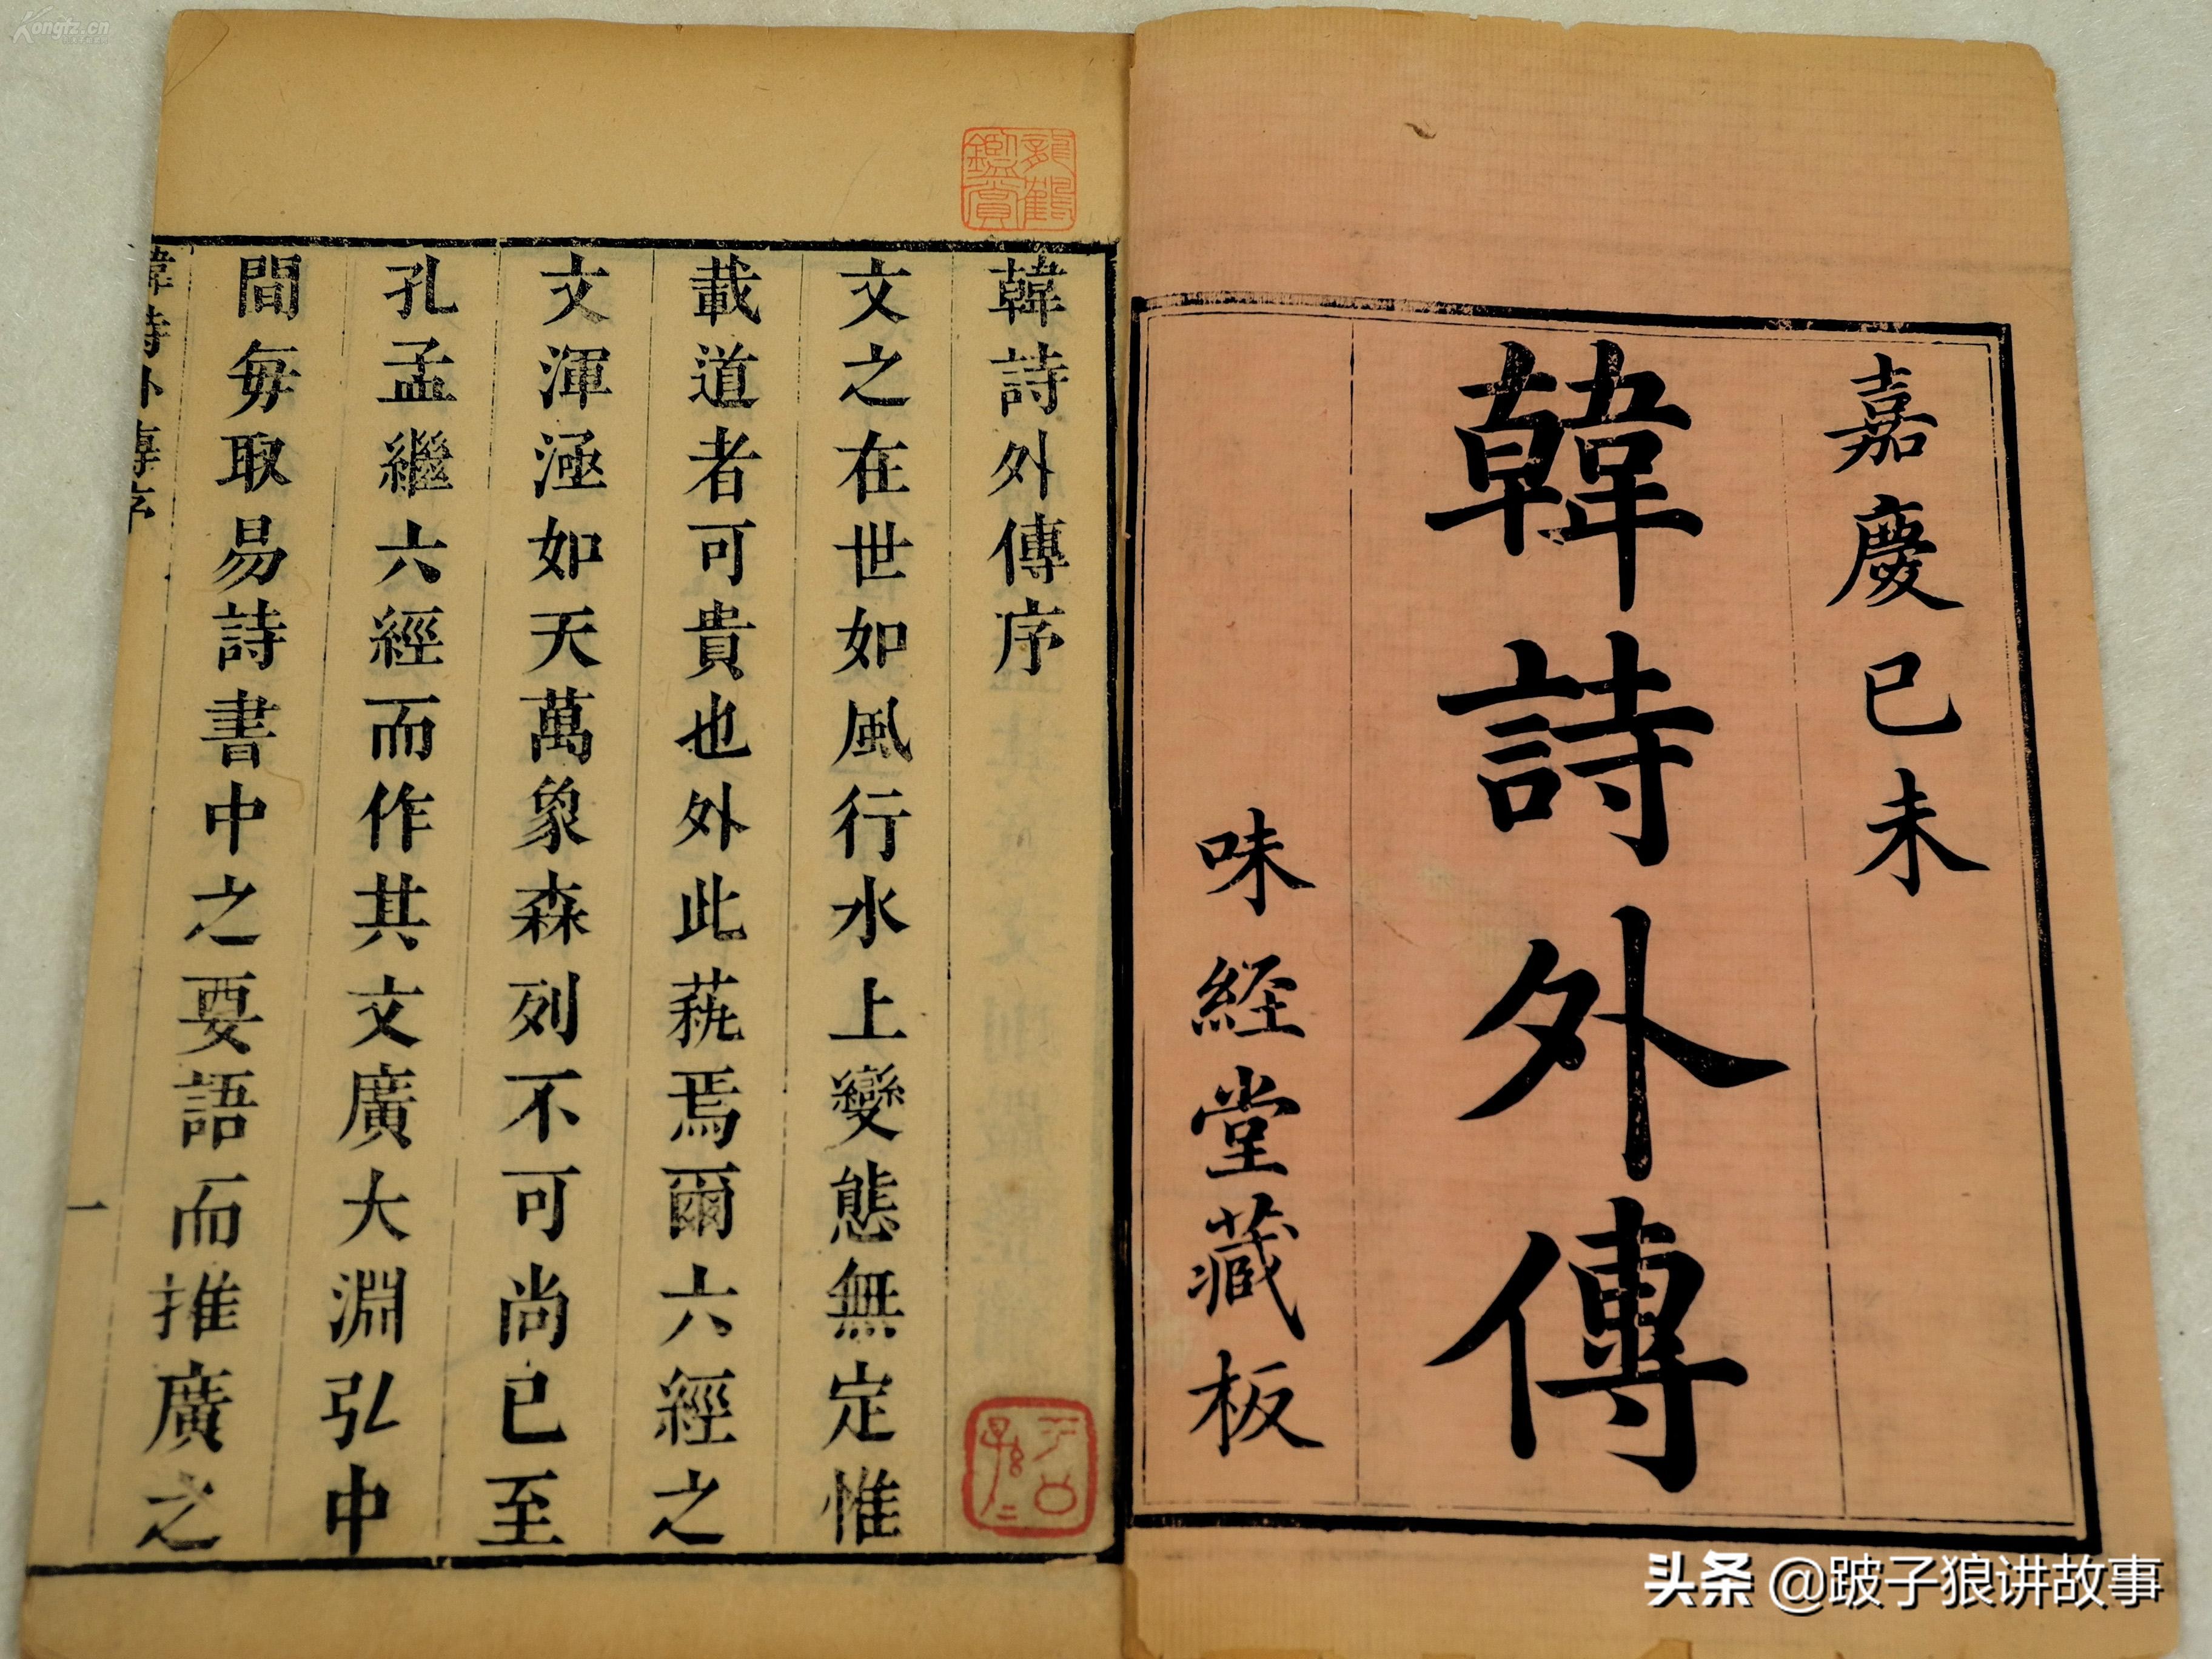 嘉慶已未
韓詩外傳
味経堂藏板
韓詩外傳序
文之在世如風行水上變態無定惟
載道者可貴也外此蓺焉爾六經之
文渾涵如天萬象森列不可尚已至
孔孟繼六經而作其文廣大淵弘中
間毎取易詩書中之要語而推廣之
韓詩外傳序
一
鑑賞
Kongfz.cn
头条 @跛子狼讲故事